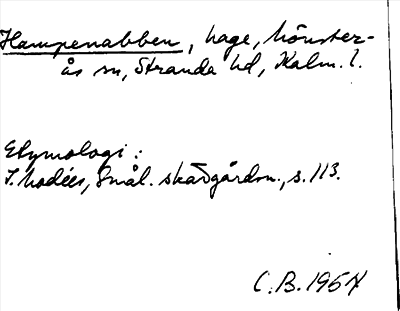 Hampenabben, hage, Mönster-
ås sn, Stranda hd, Kalm. l.
Etymologi:
I. Modéer, Smål. skärgårdsn., s. 113.
C.B. 1957